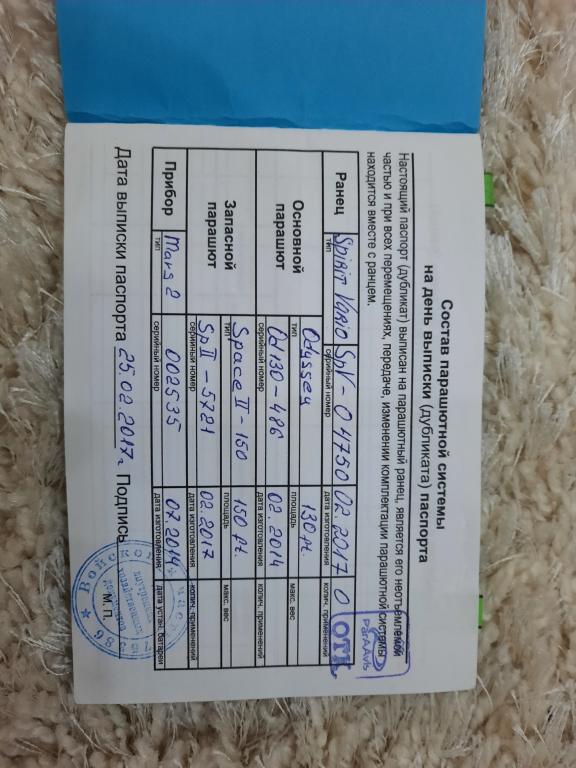 Состав парашютной системы
на день выписки (дубликата) паспорта
Настоящий паспорт (дубликат) выписан на парашютный ранец, является его неотъемлемой
частью и при всех перемещениях, передаче, изменении комплектации парашютной системы
находится вместе с ранцем.
Ранец Spirit Vario SpV-04750 02.2017 0
тип серийный номер дата изготовления колич. применений
Основной парашют Odyssey 130 ft.
тип площадь макс. вес
Od130-486 02.2014
серийный номер дата изготовления колич. применений
Запасной парашют Space II-150 150 ft.
тип площадь макс. вес
Sp II-5721 02.2017
серийный номер дата изготовления колич. применений
Прибор Mars 2 002535 07.2014
тип серийный номер дата изготовления дата устан. батареи
Дата выписки паспорта 25.02.2017г Подпись
М.П.
ParaAvis
ОТК